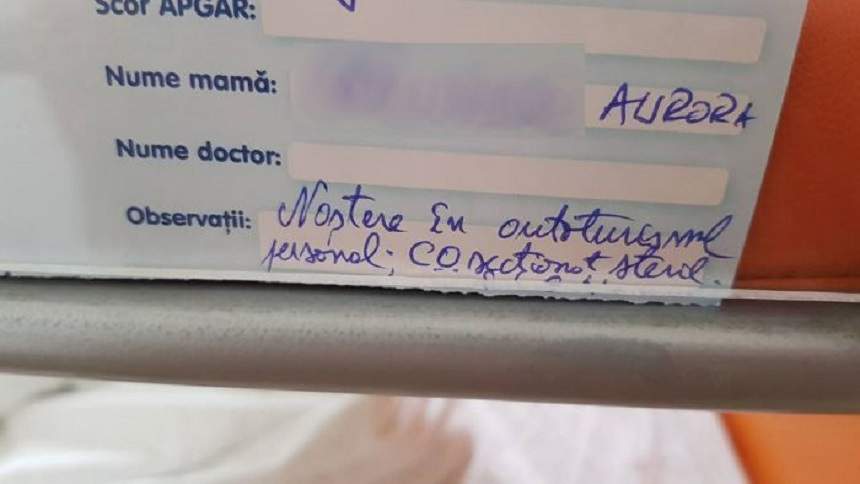 Scor APGAR:
Nume mamă: AURORA
Nume doctor:
Observații: Naștere în autoturismul
personal; C.O. secționat steril.